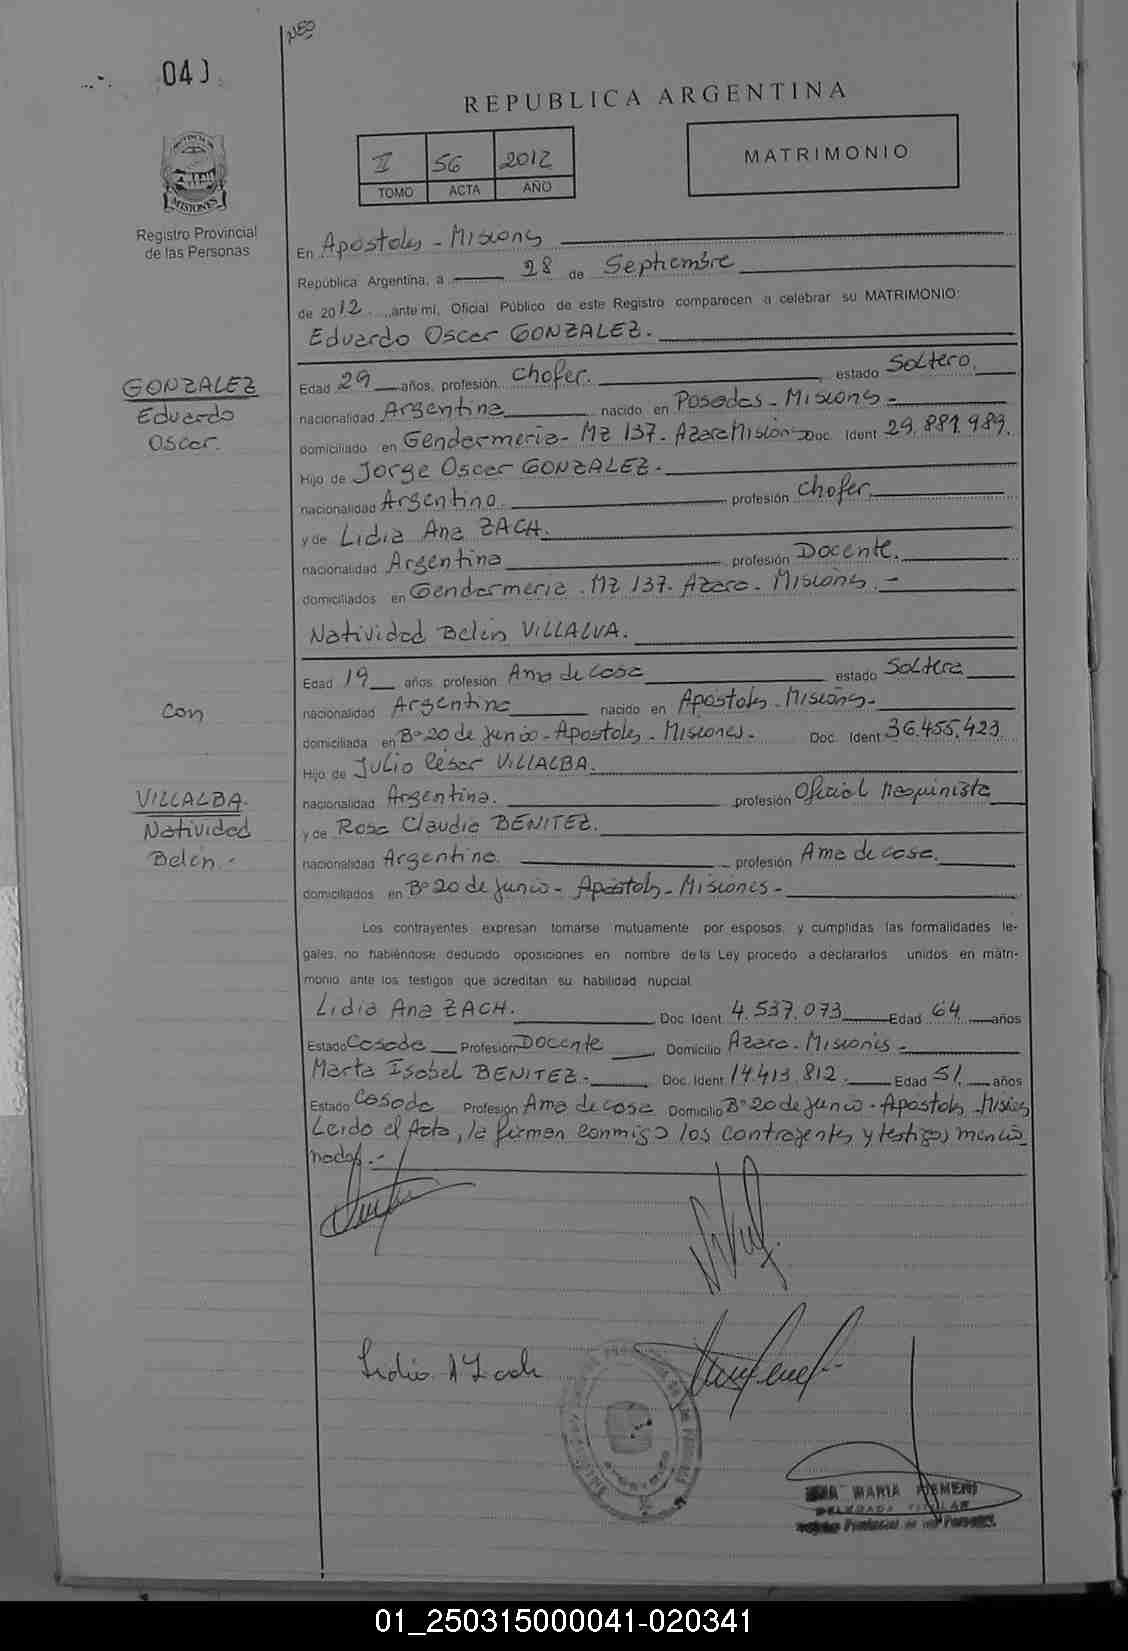 041
NEO
REPUBLICA ARGENTINA
II 56 2012
TOMO ACTA AÑO
MATRIMONIO
PROVINCIA DE
MISIONES
Registro Provincial
de las Personas
En Apóstoles - Misiones
República Argentina, a 28 de Septiembre
de 2012, ante mí, Oficial Público de este Registro comparecen a celebrar su MATRIMONIO:
Eduardo Oscar GONZALEZ.
GONZALEZ
Eduardo
Oscar.
Edad 29 años, profesión Chofer. estado Soltero.
nacionalidad Argentina nacido en Posadas - Misiones -
domiciliado en Gendarmeria - Mz 137 - Azara Misiones Doc. Ident 29.881.989.
Hijo de Jorge Oscar GONZALEZ -
nacionalidad Argentino. profesión Chofer.
y de Lidia Ana ZACH.
nacionalidad Argentina profesión Docente.
domiciliados en Gendarmeria . Mz 137. Azara - Misiones . -
Natividad Belén VILLALVA.
con
VILLALBA.
Natividad
Belén. -
Edad 19 años, profesión Ama de casa estado Soltera
nacionalidad Argentina nacido en Apóstoles - Misiones -
domiciliada en B° 20 de junio - Apóstoles - Misiones - Doc. Ident 36.455.423
Hijo de Julio César VILLALBA.
nacionalidad Argentina. profesión Oficial Maquinista
y de Rosa Claudia BENITEZ.
nacionalidad Argentina. profesión Ama de casa.
domiciliados en B° 20 de junio - Apóstoles - Misiones -
Los contrayentes expresan tomarse mutuamente por esposos, y cumplidas las formalidades le-
gales, no habiéndose deducido oposiciones en nombre de la Ley procedo a declararlos unidos en matri-
monio ante los testigos que acreditan su habilidad nupcial.
Lidia Ana ZACH. Doc. Ident 4.537.073 Edad 64 años
Estado Casada Profesión Docente Domicilio Azara - Misiones -
Marta Isabel BENITEZ - Doc. Ident 14.413.812. Edad 51 años
Estado Casada Profesión Ama de casa Domicilio B° 20 de junio - Apóstoles - Misiones
Leído el Acta, la firman conmigo los contrayentes y testigos mencio
nados. -
Lidia A Zach
MARIA
DELEGADA TITULAR
Registro Provincial de las Personas
01_250315000041-020341